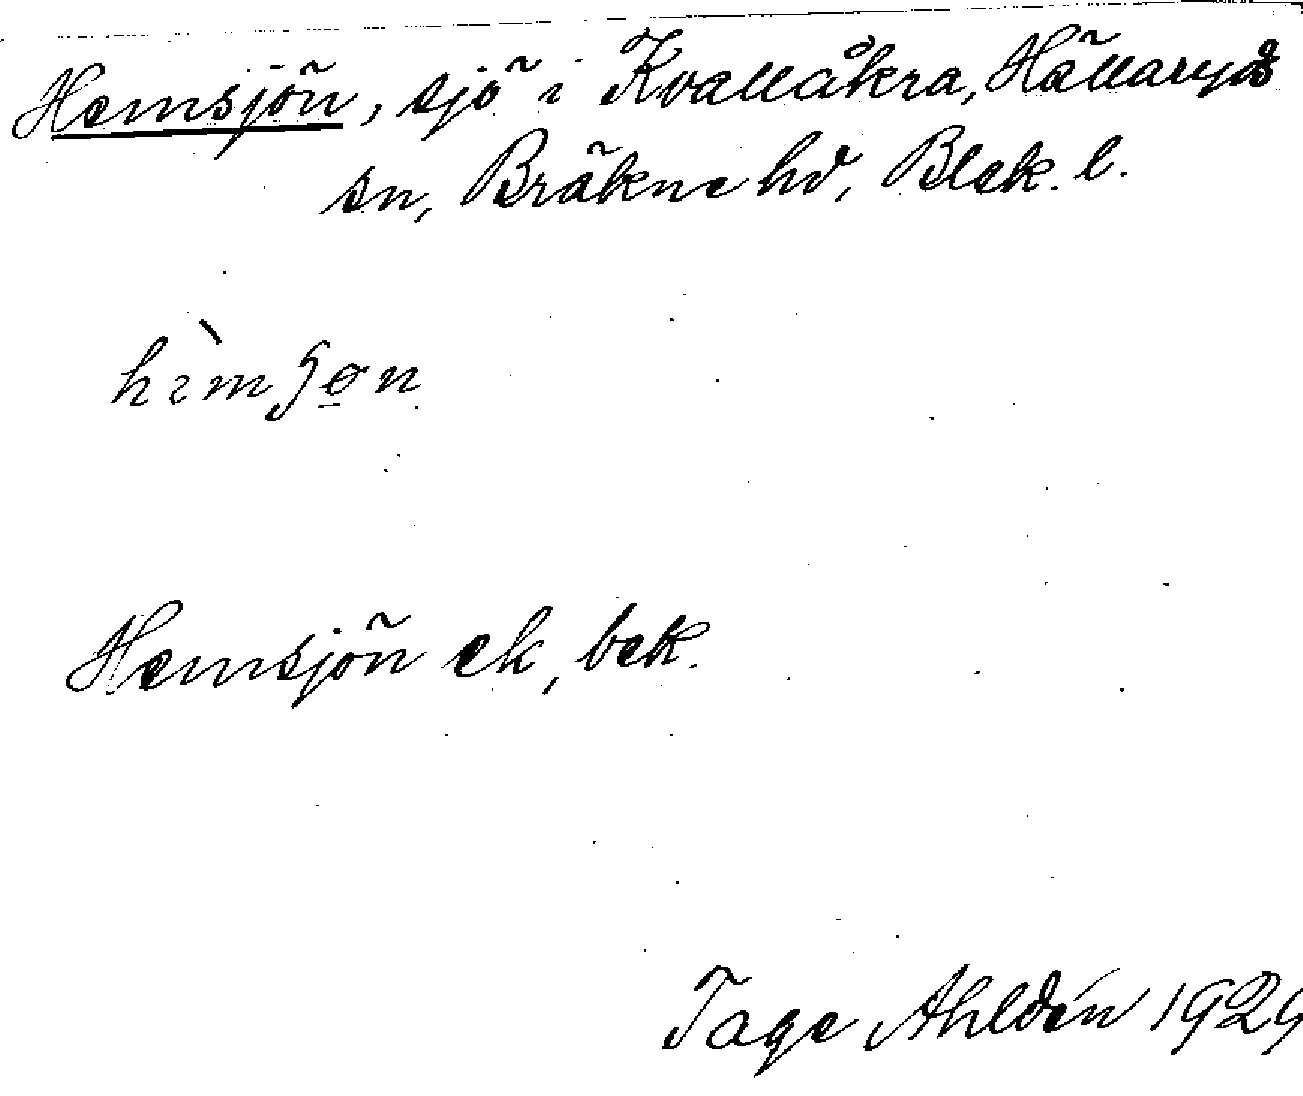 Hemsjön, sjö i Kvallåkra, Hällaryds
sn, Bräkne hd, Blek. l.
hìmʃøn
Hemsjön ek, bek.
Tage Ahldén 1929